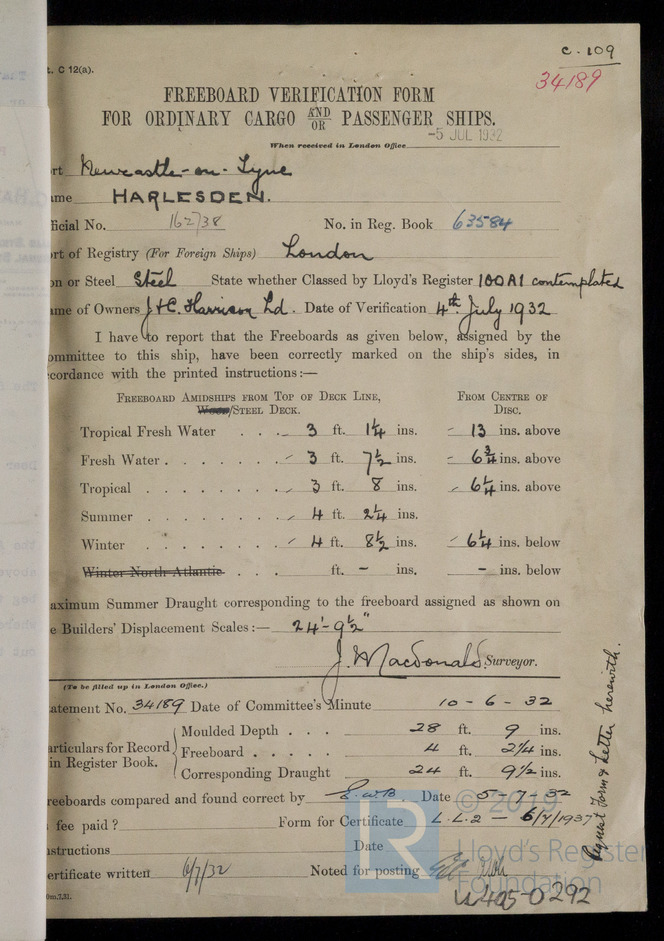 C-109
t. C 12(a).
34189
FREEBOARD VERIFICATION FORM
FOR ORDINARY CARGO AND/OR PASSENGER SHIPS.
-5 JUL 1932
When received in London Office
rt Newcastle-on-Tyne
me HARLESDEN.
ficial No. 162738 No. in Reg. Book 63584
rt of Registry (For Foreign Ships) London
on or Steel Steel State whether Classed by Lloyd's Register 100A1 contemplated
me of Owners J & C. Harrison Ld. Date of Verification 4th July 1932
I have to report that the Freeboards as given below, assigned by the
ommittee to this ship, have been correctly marked on the ship's sides, in
cordance with the printed instructions:—
FREEBOARD AMIDSHIPS FROM TOP OF DECK LINE, FROM CENTRE OF
WOOD/STEEL DECK. DISC.
Tropical Fresh Water . . . 3 ft. 1¼ ins. 13 ins. above
Fresh Water . . . . . . . 3 ft. 7½ ins. 6¾ ins. above
Tropical . . . . . . . . 3 ft. 8 ins. 6¼ ins. above
Summer . . . . . . . . 4 ft. 2¼ ins.
Winter . . . . . . . . 4 ft. 8½ ins. 6¼ ins. below
Winter North Atlantic . . . ft. - ins. - ins. below
aximum Summer Draught corresponding to the freeboard assigned as shown on
e Builders' Displacement Scales:— 24'-9½"
J. MacDonald Surveyor.
(To be filled up in London Office.)
atement No. 34189 Date of Committee's Minute 10-6-32
articulars for Record in Register Book.
Moulded Depth . . . 28 ft. 9 ins.
Freeboard . . . . . 4 ft. 2¼ ins.
Corresponding Draught 24 ft. 9½ ins.
reeboards compared and found correct by E.W.B Date 5-7-32
fee paid? Form for Certificate L.L.2 — 6/7/1937
structions Date
ertificate written 6/7/32 Noted for posting
0m.7.31.
Request Form & Letter herewith.
© 2019
LR
Lloyd's Register
Foundation
W405-0292